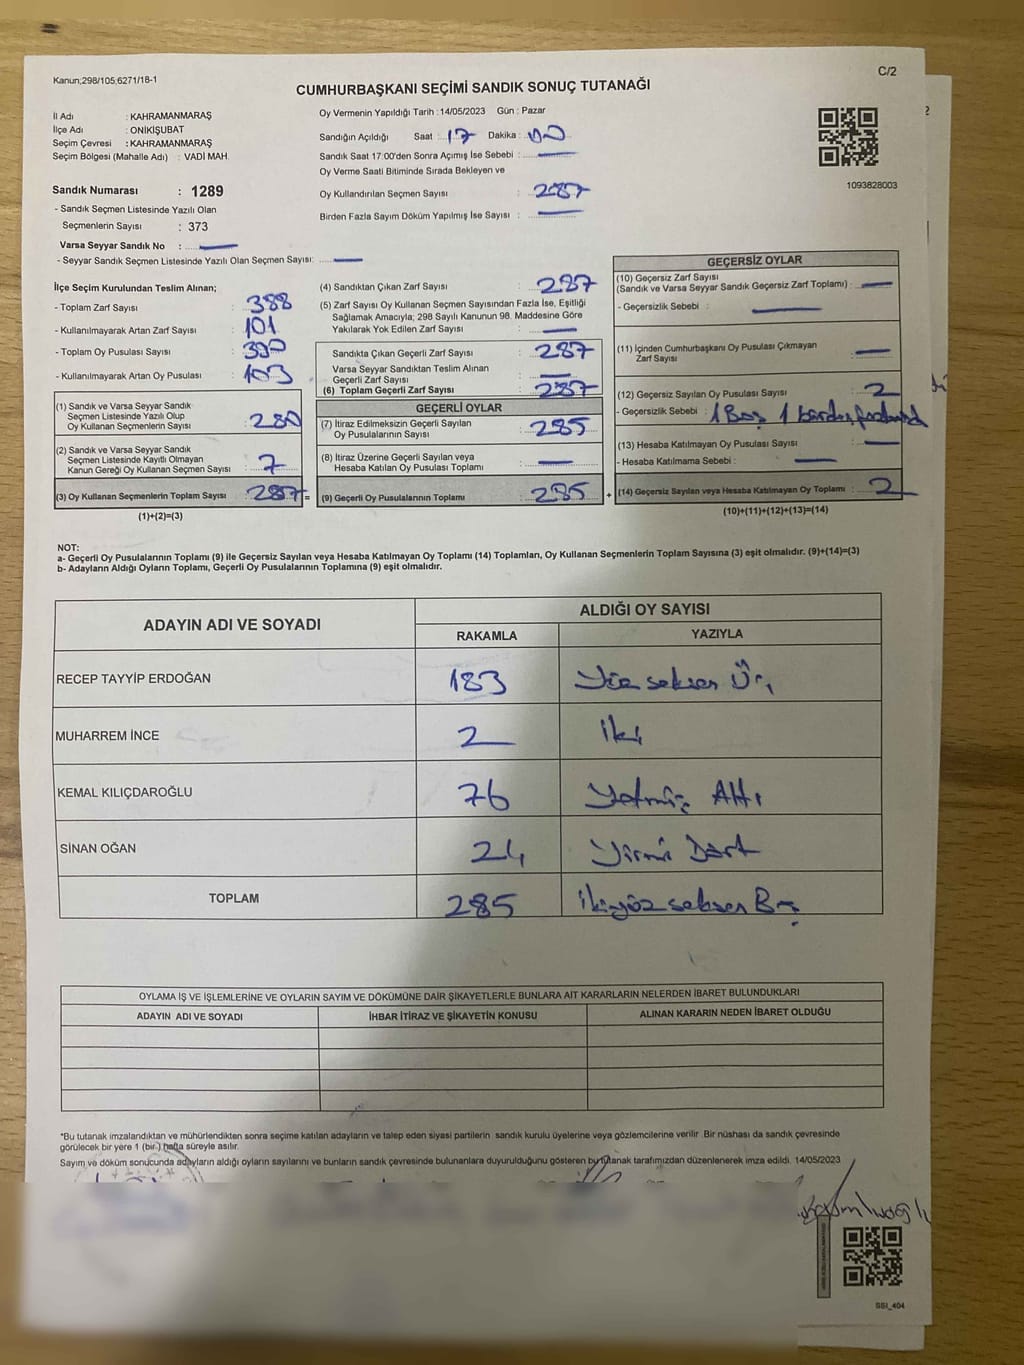 Kanun;298/105,6271/18-1
C/2
CUMHURBAŞKANI SEÇİMİ SANDIK SONUÇ TUTANAĞI
İl Adı : KAHRAMANMARAŞ
İlçe Adı : ONİKİŞUBAT
Seçim Çevresi : KAHRAMANMARAŞ
Seçim Bölgesi (Mahalle Adı) : VADİ MAH.
Sandık Numarası : 1289
- Sandık Seçmen Listesinde Yazılı Olan
Seçmenlerin Sayısı : 373
Varsa Seyyar Sandık No :
- Seyyar Sandık Seçmen Listesinde Yazılı Olan Seçmen Sayısı:
Oy Vermenin Yapıldığı Tarih : 14/05/2023 Gün : Pazar
Sandığın Açıldığı Saat : 17 Dakika : 00
Sandık Saat 17:00'den Sonra Açımış İse Sebebi :
Oy Verme Saati Bitiminde Sırada Bekleyen ve
Oy Kullandırılan Seçmen Sayısı : 287
Birden Fazla Sayım Döküm Yapılmış İse Sayısı :
1093828003
İlçe Seçim Kurulundan Teslim Alınan;
- Toplam Zarf Sayısı : 388
- Kullanılmayarak Artan Zarf Sayısı : 101
- Toplam Oy Pusulası Sayısı : 390
- Kullanılmayarak Artan Oy Pusulası : 103
(1) Sandık ve Varsa Seyyar Sandık
Seçmen Listesinde Yazılı Olup
Oy Kullanan Seçmenlerin Sayısı : 280
(2) Sandık ve Varsa Seyyar Sandık
Seçmen Listesinde Kayıtlı Olmayan
Kanun Gereği Oy Kullanan Seçmen Sayısı : 7
(3) Oy Kullanan Seçmenlerin Toplam Sayısı : 287 =
(1)+(2)=(3)
(4) Sandıktan Çıkan Zarf Sayısı : 287
(5) Zarf Sayısı Oy Kullanan Seçmen Sayısından Fazla İse, Eşitliği
Sağlamak Amacıyla; 298 Sayılı Kanunun 98. Maddesine Göre
Yakılarak Yok Edilen Zarf Sayısı :
Sandıkta Çıkan Geçerli Zarf Sayısı : 287
Varsa Seyyar Sandıktan Teslim Alınan
Geçerli Zarf Sayısı :
(6) Toplam Geçerli Zarf Sayısı : 287
GEÇERLİ OYLAR
(7) İtiraz Edilmeksizin Geçerli Sayılan
Oy Pusulalarının Sayısı : 285
(8) İtiraz Üzerine Geçerli Sayılan veya
Hesaba Katılan Oy Pusulası Toplamı :
(9) Geçerli Oy Pusulalarının Toplamı : 285 +
GEÇERSİZ OYLAR
(10) Geçersiz Zarf Sayısı
(Sandık ve Varsa Seyyar Sandık Geçersiz Zarf Toplamı) :
- Geçersizlik Sebebi :
(11) İçinden Cumhurbaşkanı Oy Pusulası Çıkmayan
Zarf Sayısı :
(12) Geçersiz Sayılan Oy Pusulası Sayısı : 2
- Geçersizlik Sebebi : 1 Boş 1 birden fazla
(13) Hesaba Katılmayan Oy Pusulası Sayısı :
- Hesaba Katılmama Sebebi :
(14) Geçersiz Sayılan veya Hesaba Katılmayan Oy Toplamı : 2
(10)+(11)+(12)+(13)=(14)
NOT:
a- Geçerli Oy Pusulalarının Toplamı (9) ile Geçersiz Sayılan veya Hesaba Katılmayan Oy Toplamı (14) Toplamları, Oy Kullanan Seçmenlerin Toplam Sayısına (3) eşit olmalıdır. (9)+(14)=(3)
b- Adayların Aldığı Oyların Toplamı, Geçerli Oy Pusulalarının Toplamına (9) eşit olmalıdır.
ADAYIN ADI VE SOYADI ALDIĞI OY SAYISI
RAKAMLA YAZIYLA
RECEP TAYYİP ERDOĞAN 183 Yüz seksen Üç
MUHARREM İNCE 2 iki
KEMAL KILIÇDAROĞLU 76 Yetmiş Altı
SİNAN OĞAN 24 Yirmi Dört
TOPLAM 285 ikiyüz seksen Beş
OYLAMA İŞ VE İŞLEMLERİNE VE OYLARIN SAYIM VE DÖKÜMÜNE DAİR ŞİKAYETLERLE BUNLARA AİT KARARLARIN NELERDEN İBARET BULUNDUKLARI
ADAYIN ADI VE SOYADI İHBAR İTİRAZ VE ŞİKAYETİN KONUSU ALINAN KARARIN NEDEN İBARET OLDUĞU
*Bu tutanak imzalandıktan ve mühürlendikten sonra seçime katılan adayların ve talep eden siyasi partilerin sandık kurulu üyelerine veya gözlemcilerine verilir .Bir nüshası da sandık çevresinde
görülecek bir yere 1 (bir ) hafta süreyle asılır.
Sayım ve döküm sonucunda adayların aldığı oyların sayılarını ve bunların sandık çevresinde bulunanlara duyurulduğunu gösteren bu tutanak tarafımızdan düzenlenerek imza edildi. 14/05/2023
SSI_404